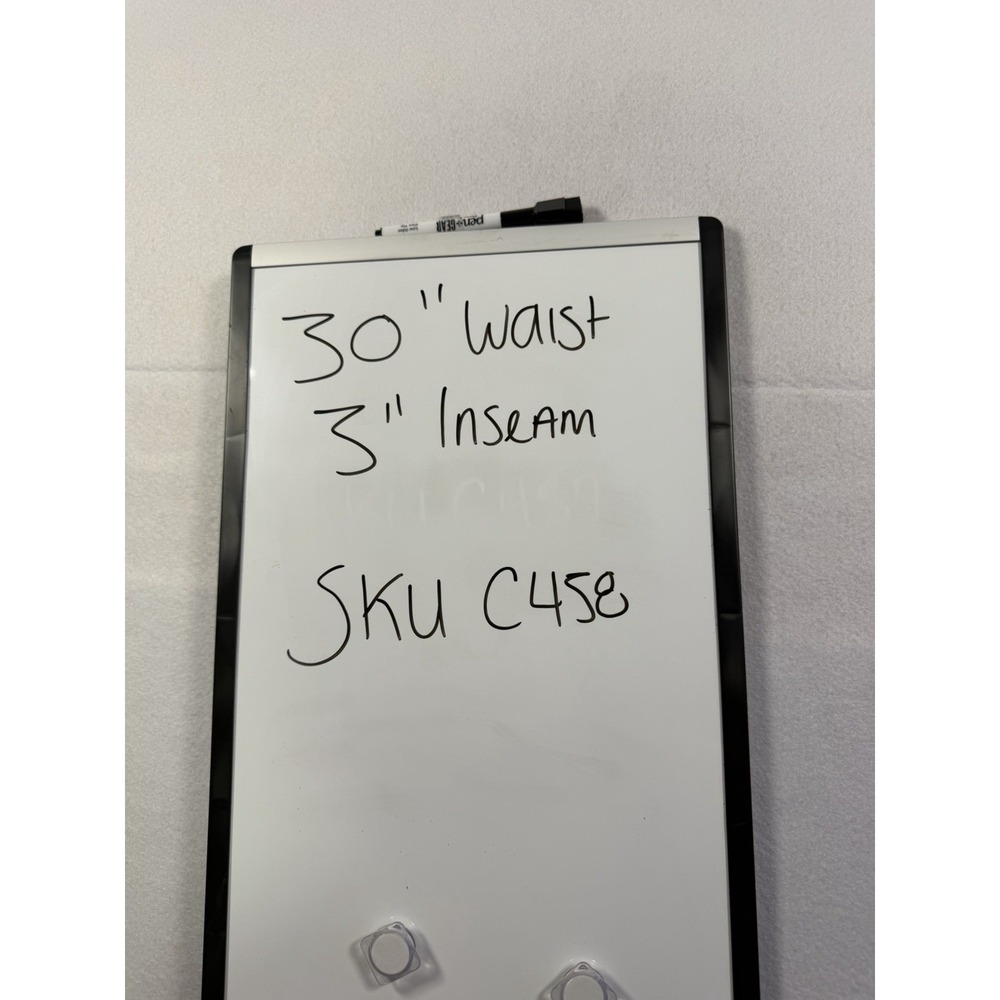 pen+GEAR
30" Waist
3" Inseam
SKU C458